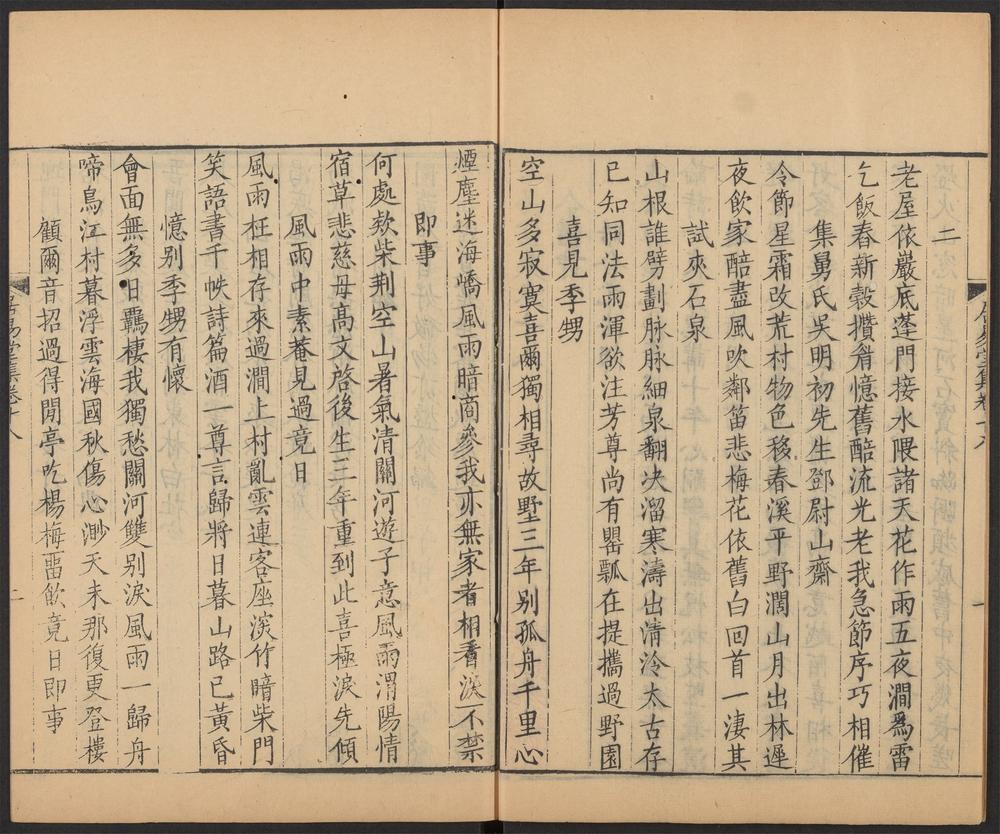 二
老屋依巖底蓬門接水隈諸天花作雨五夜澗為雷
乞飯舂新穀攢眉憶舊醅流光老我急節序巧相催
集舅氏吳明初先生鄧尉山齋
令節星霜改荒村物色移春溪平野濶山月出林遲
夜飲家醅盡風吹鄰笛悲梅花依舊白回首一淒其
試夾石泉
山根誰劈劃脉脉細泉翻決溜寒濤出清泠太古存
已知同法雨渾欲注芳尊尚有罌瓢在提攜過野園
喜見季甥
空山多寂寞喜爾獨相尋故墅三年别孤舟千里心
居易堂集卷十八
一
煙塵迷海嶠風雨暗商參我亦無家者相看淚不禁
即事
何處欸柴荆空山暑氣清關河遊子意風雨渭陽情
宿草悲慈母高文啓後生三年重到此喜極淚先傾
風雨中素菴見過竟日
風雨枉相存來過澗上村亂雲連客座淡竹暗柴門
笑語書千帙詩篇酒一尊言歸將日暮山路已黃昏
憶别季甥有懷
會面無多日羈棲我獨愁關河雙别淚風雨一歸舟
啼鳥江村暮浮雲海國秋傷心渺天末那復更登樓
顧爾音招過得閒亭吃楊梅畱飲竟日即事
居易堂集卷十八